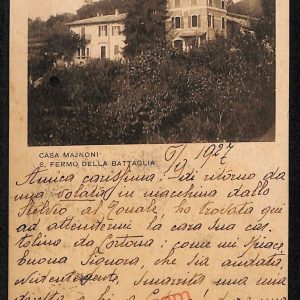 CASA MAJNONI
S. FERMO DELLA BATTAGLIA
1927
Amica carissima: di ritorno da
una volata in macchina dallo
Stelvio al Tonale ho trovata qui
ad attendermi la cara sua car
tolina da Cortona: come mi spiace
buona Signora, che sia andata,
smarrita una mia